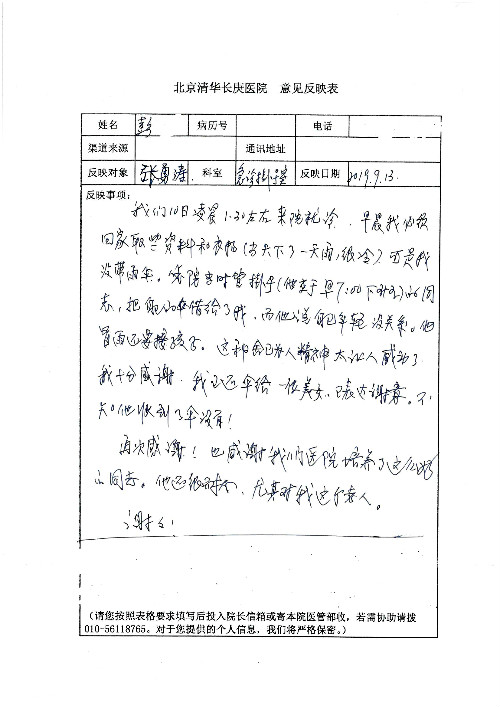 北京清华长庚医院 意见反映表
姓名 彭 病历号 电话
渠道来源 通讯地址
反映对象 张勇涛 科室 急诊挂号室 反映日期 2019.9.13.
反映事项：
我们10日凌晨1:30左右来院就诊，早晨我必须
回家取些资料和衣物(当天下了一天雨,很冷)可是我
没带雨伞。医院当时管掛号(他至于早7:00下班)的同
志，把自己的伞借给了我，而他说自己年轻没关系。他
冒雨还要接孩子。这种舍己为人精神太让人感动了
我十分感谢，我已还伞给一位美女，已表达谢意。不
知他收到了伞没有！
再次感谢！也感谢我们医院培养了这么好
的同志。他还很耐心，尤其对我这个老人。
谢谢！
(请您按照表格要求填写后投入院长信箱或寄本院医管部收，若需协助请拨
010-56118765。对于您提供的个人信息，我们将严格保密。)